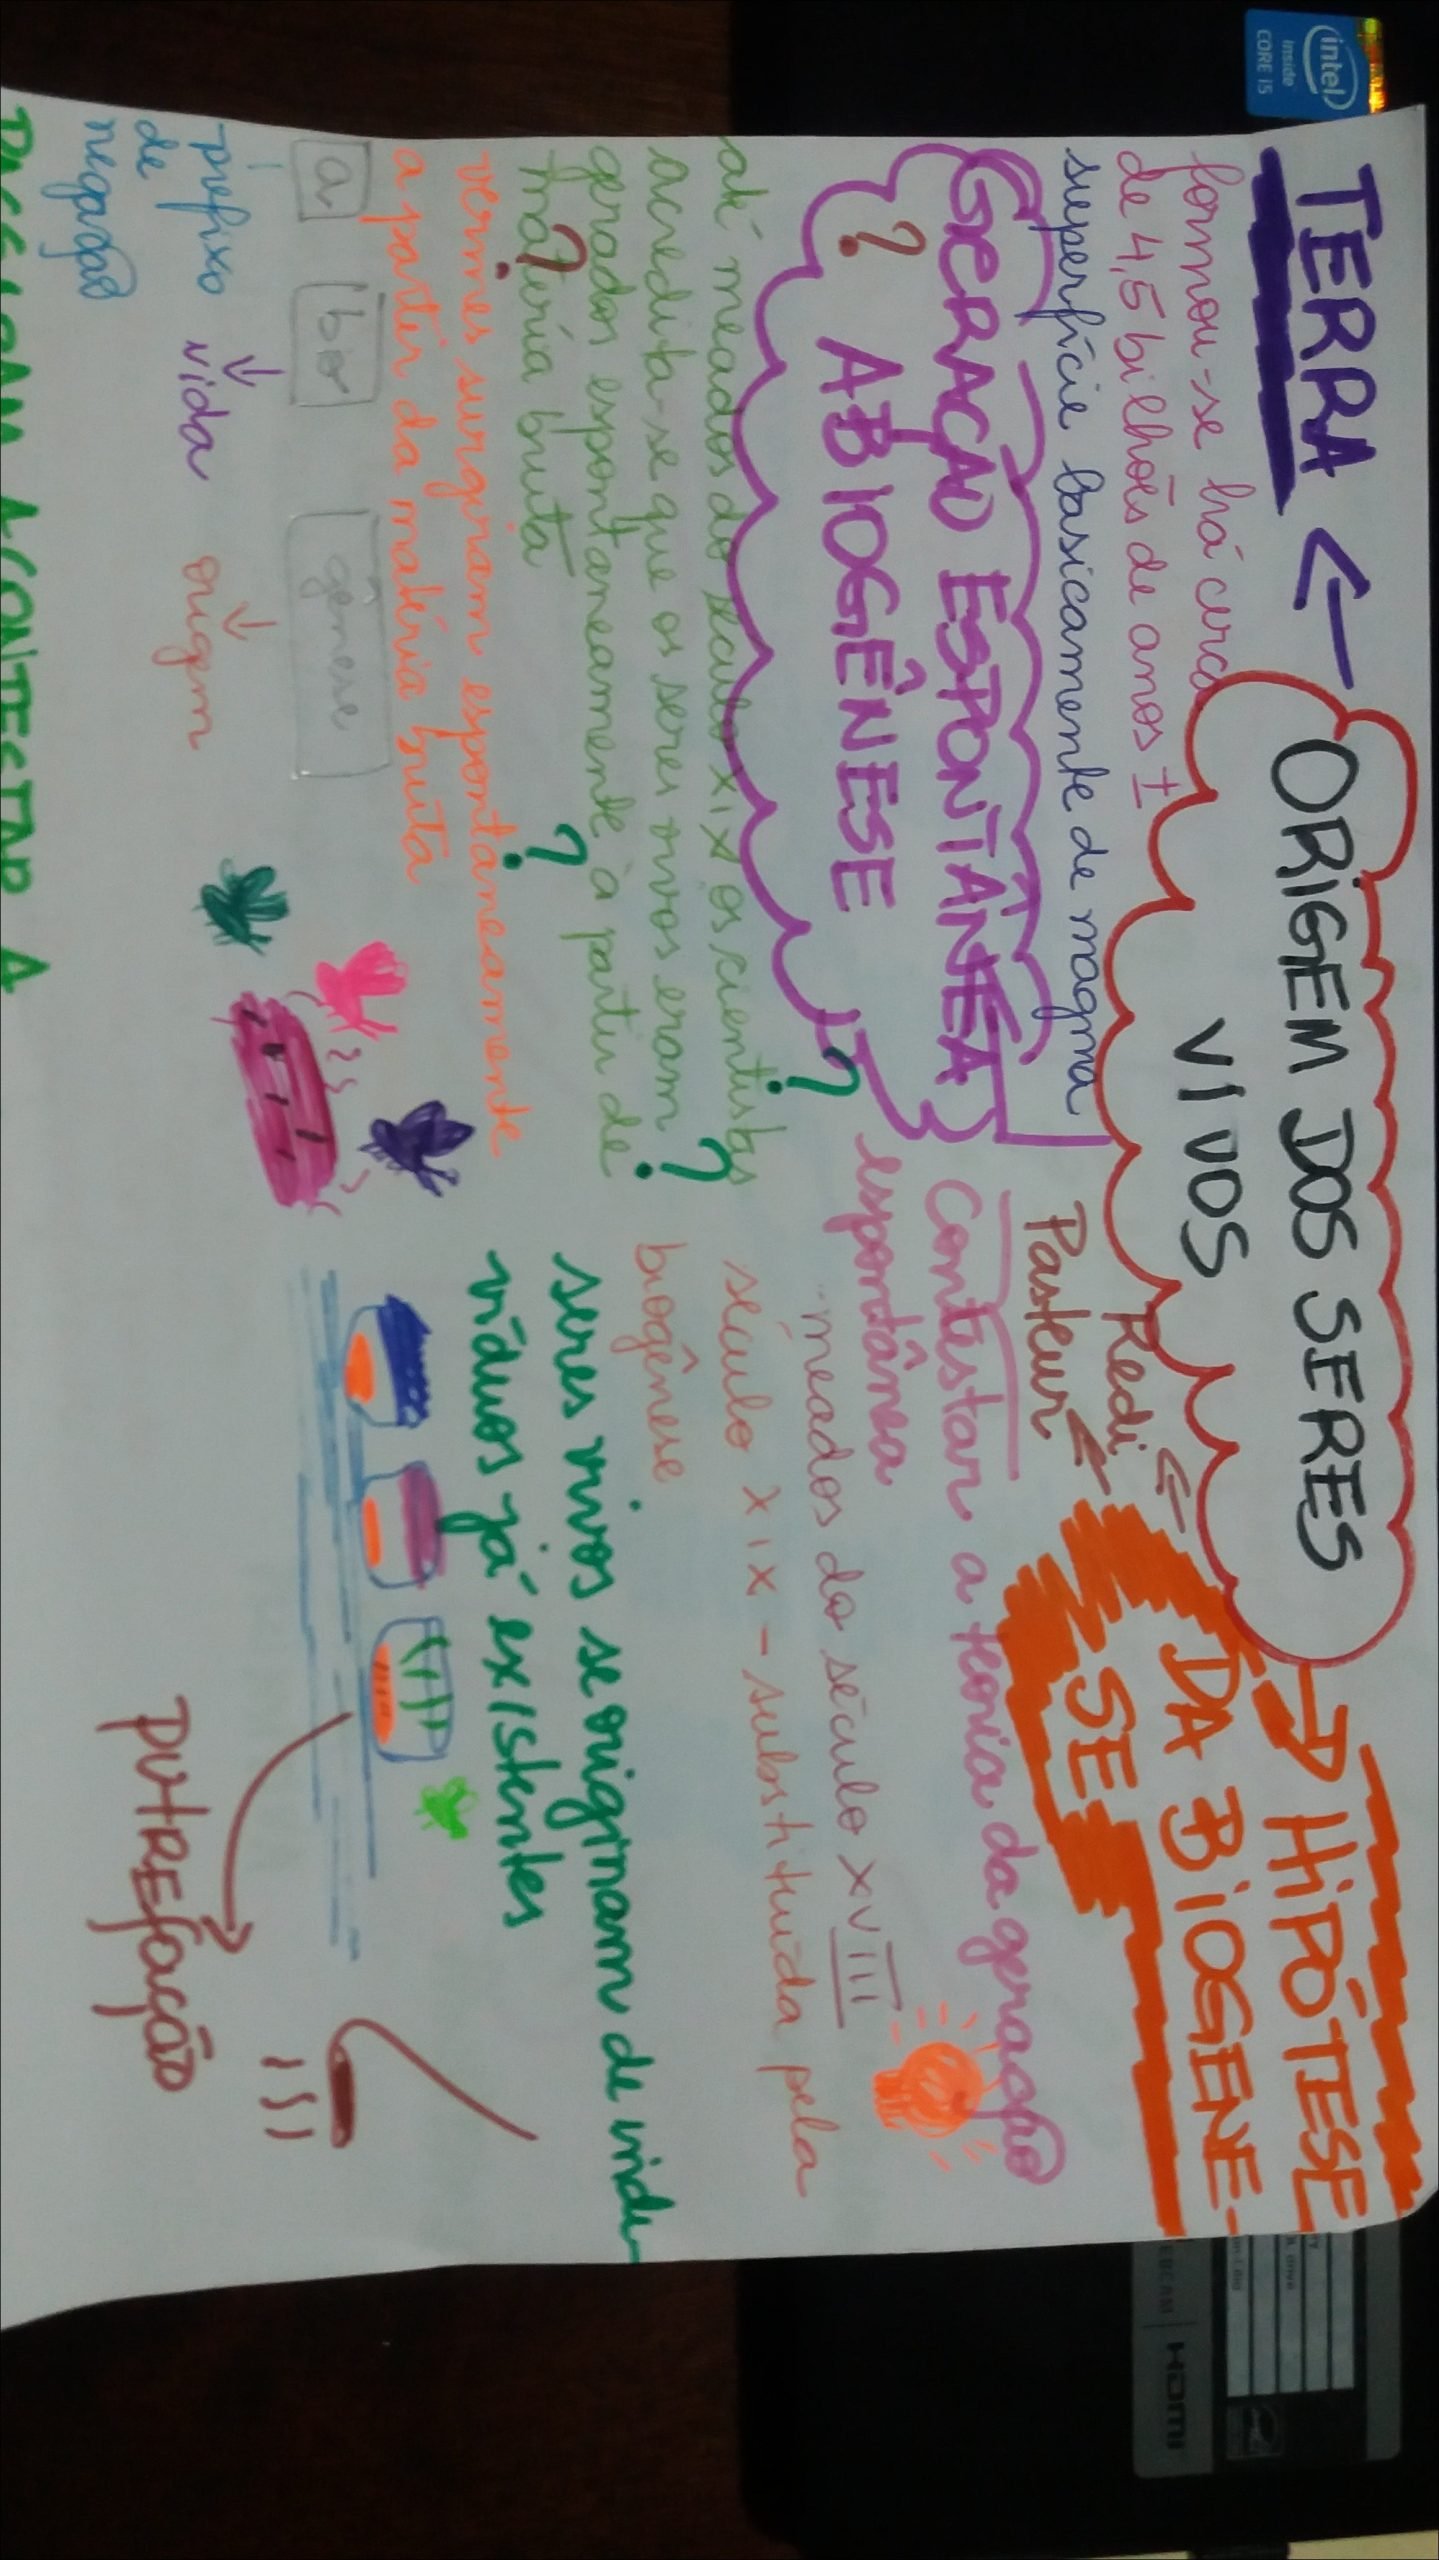 intel
inside
CORE i5
ORIGEM DOS SERES
VIVOS
TERRA
formou-se há cerca
de 4,5 bilhões de anos ±
superfície basicamente de magma
GERAÇÃO ESPONTÂNEA
? ABIOGÊNESE
?
até meados do século XIX os cientistas
acredita-se que os seres vivos eram ?
gerados espontaneamente à partir de
matéria bruta
?
?
vermes surgiram espontaneamente
a partir da matéria bruta
a bio gênese
prefixo
de
negação
vida
origem
HIPÓTESE
DA BIOGENE-
SE
Redi
Pasteur
Contestar a teoria da geração
espontânea
meados do século XVIII
século XIX - substituída pela
biogênese
seres vivos se originam de indi-
víduos já existentes
PUTREFAÇÃO
HDMI